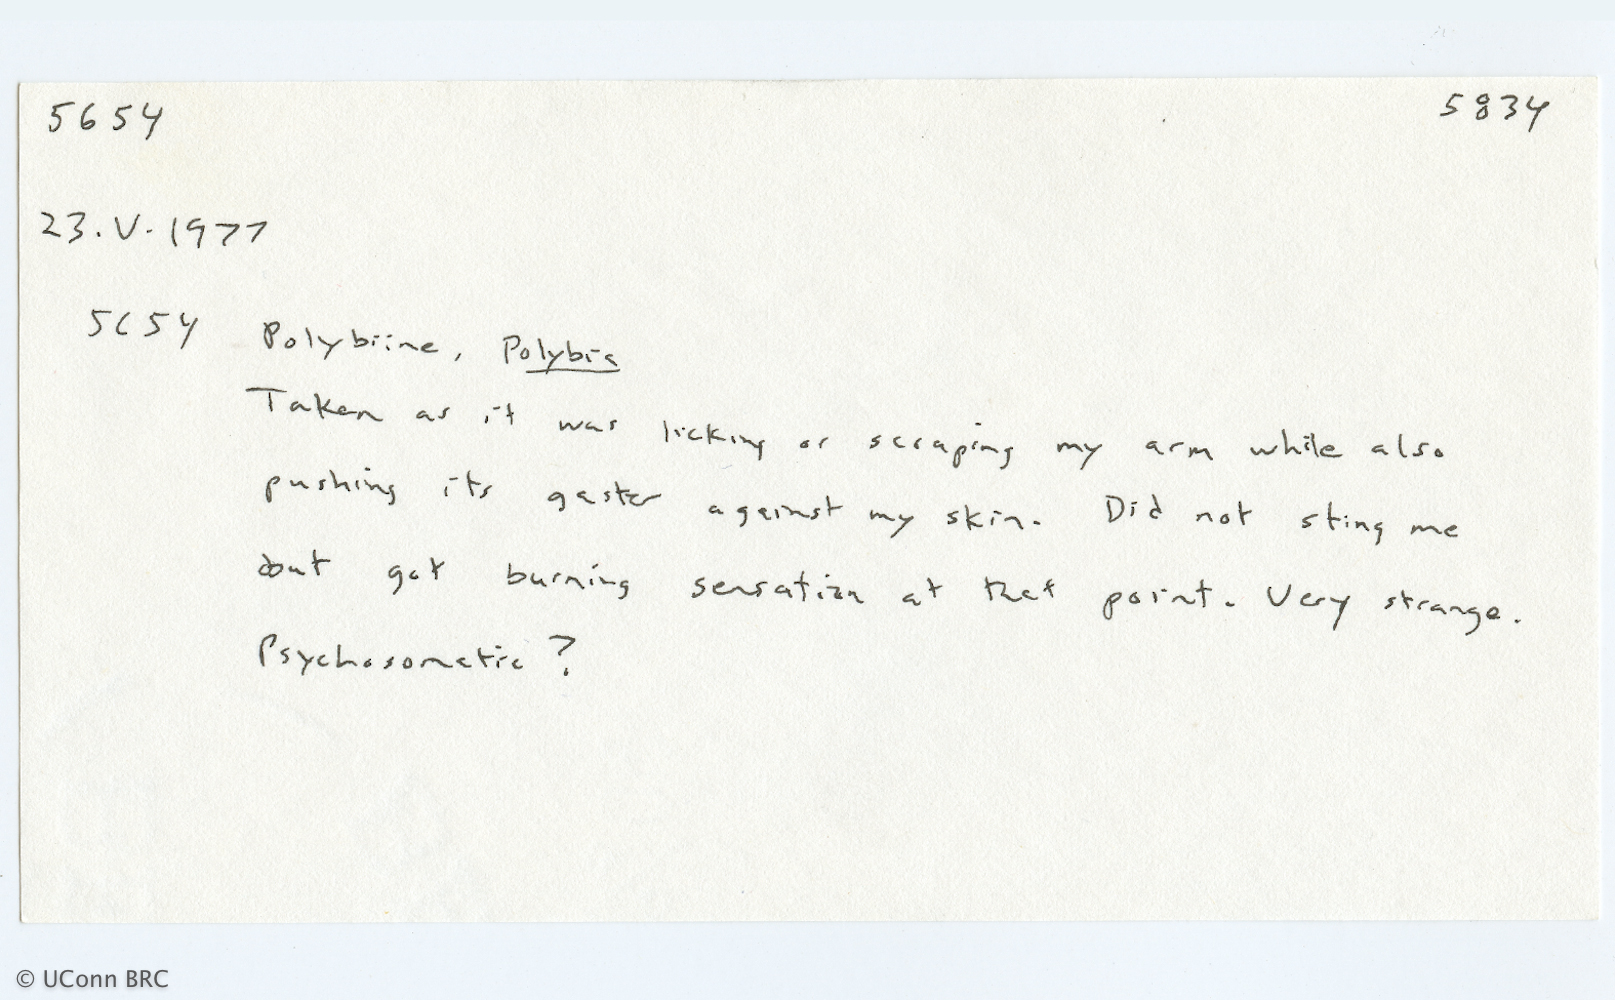 5654 5834
23.V.1977
5654 Polybiine, Polybia
Taken as it was licking or scraping my arm while also
pushing its gaster against my skin. Did not sting me
but got burning sensation at that point. Very strange.
Psychosomatic?
© UConn BRC